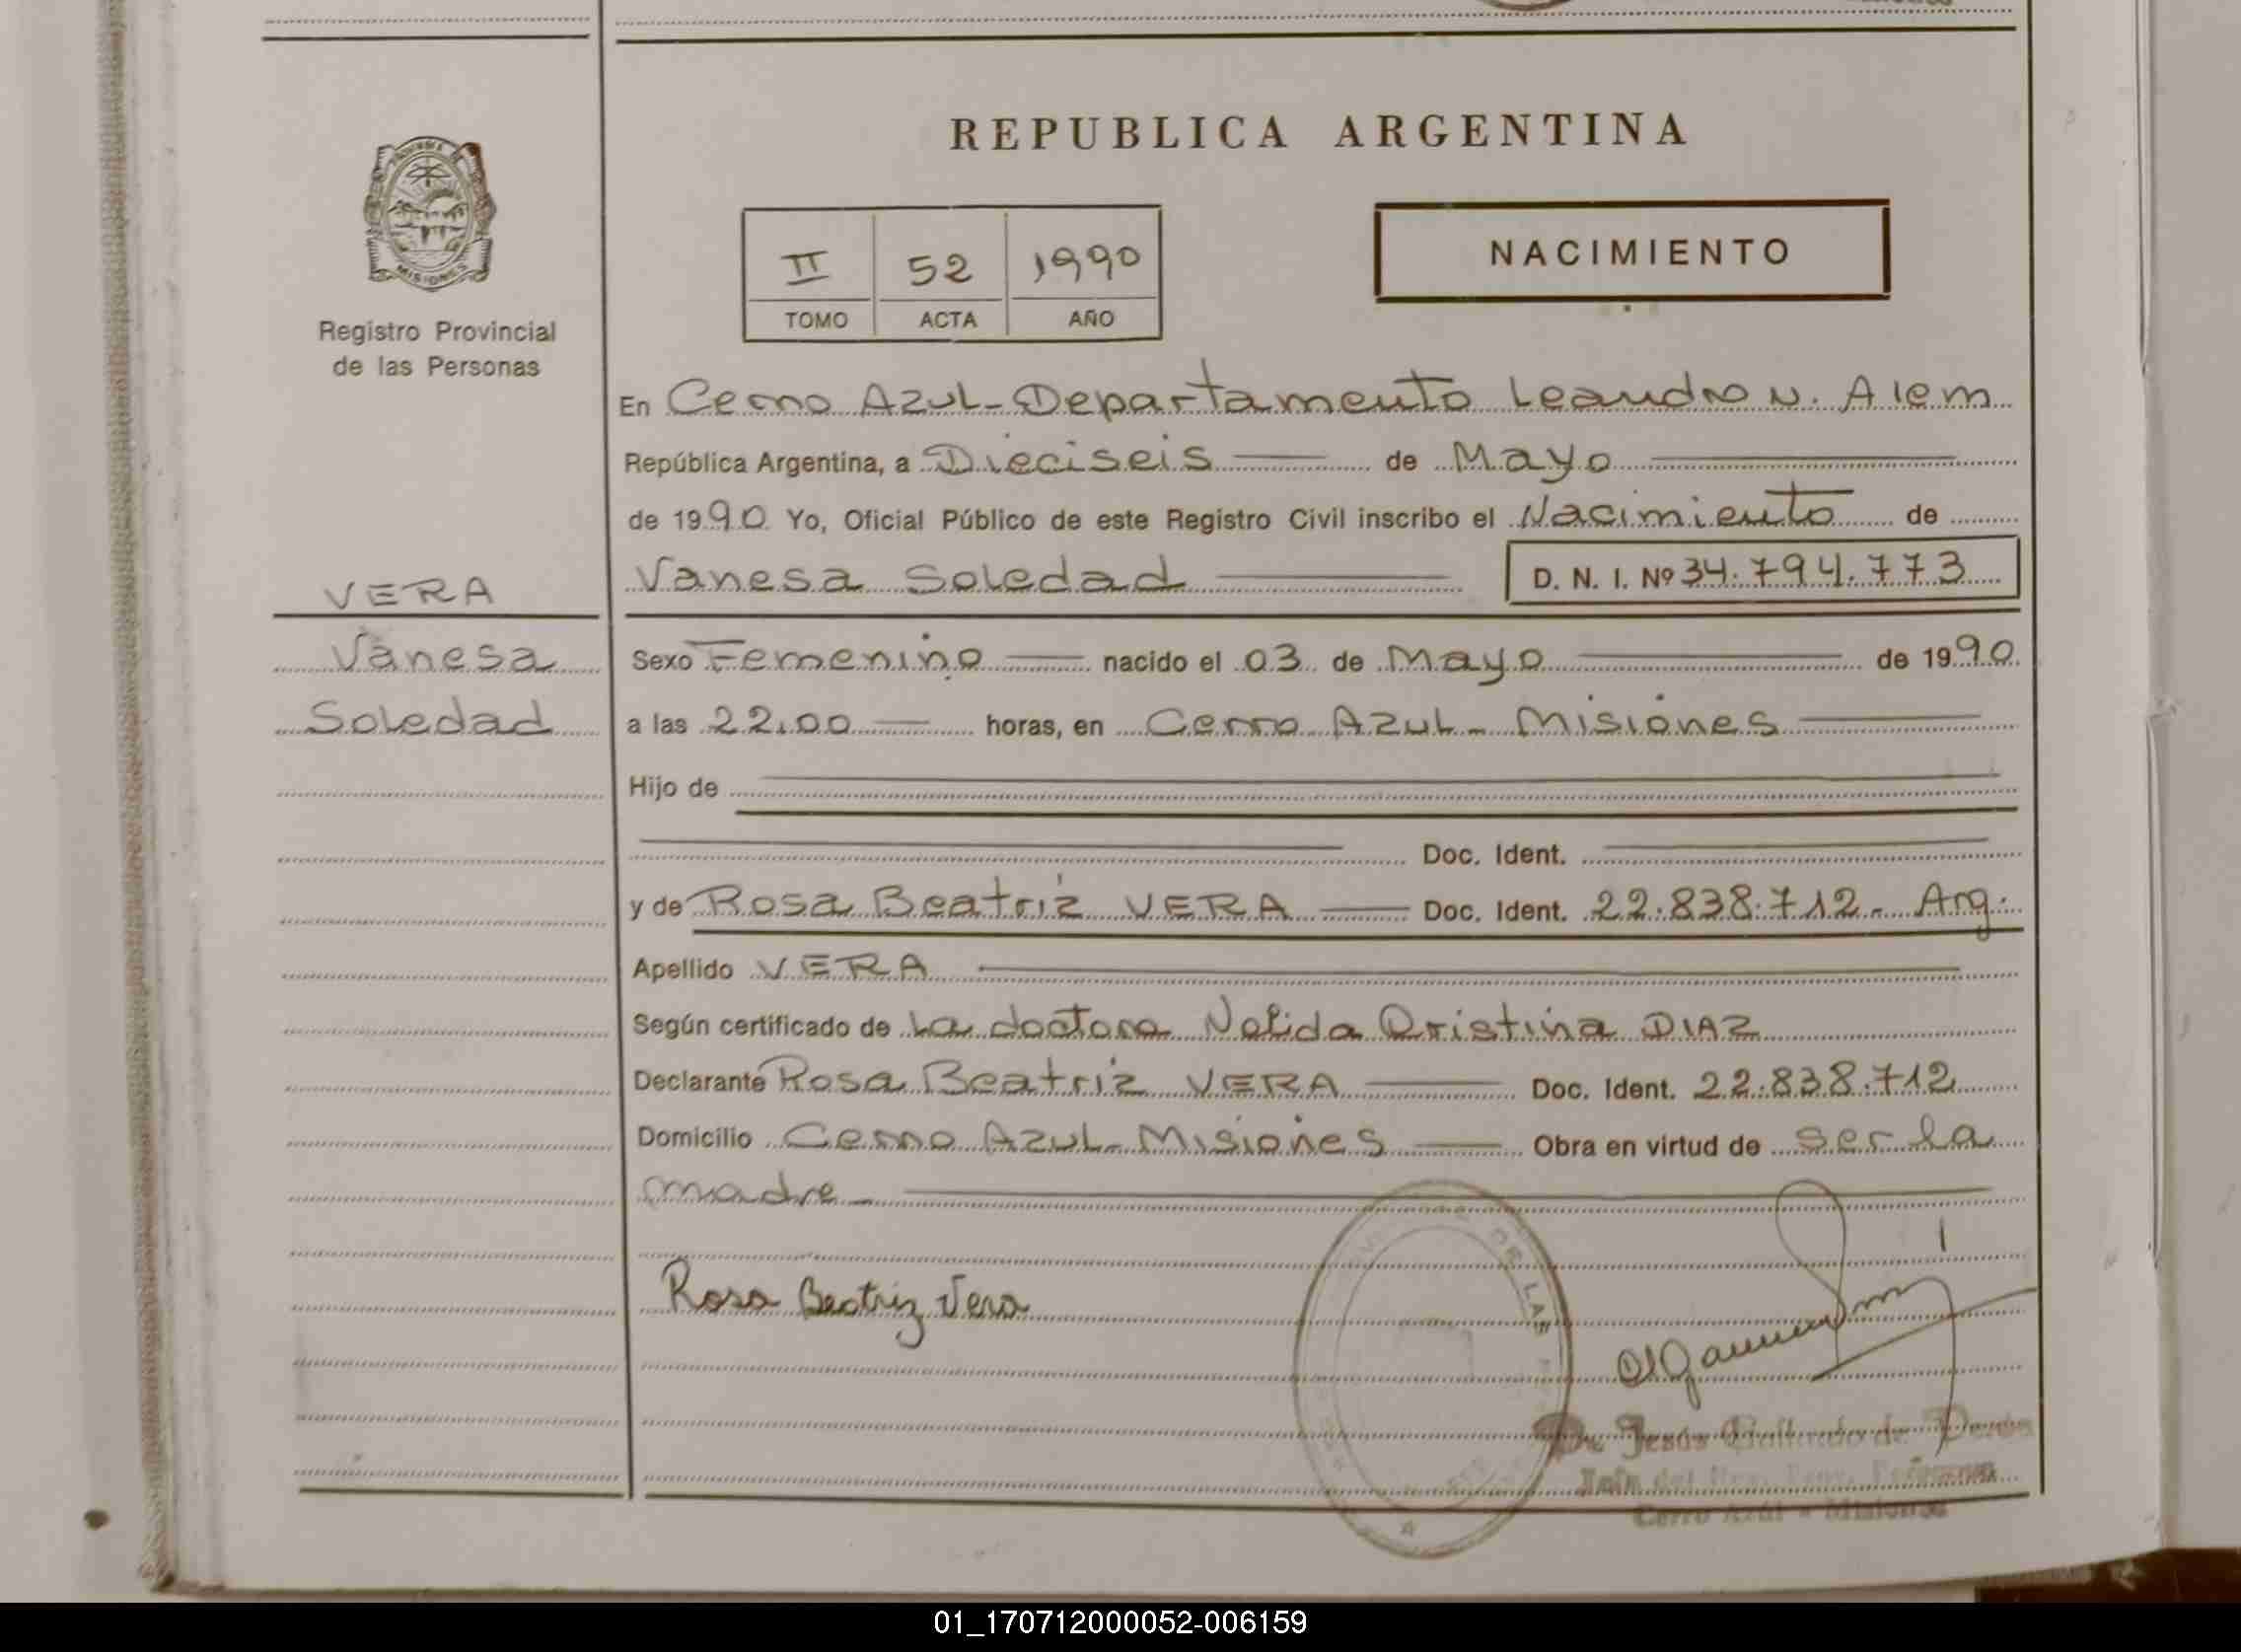 REPUBLICA ARGENTINA
MISIONES
Registro Provincial
de las Personas
II 52 1990
TOMO ACTA AÑO
NACIMIENTO
En Cerro Azul - Departamento Leandro N. Alem
República Argentina, a Dieciseis de Mayo
de 1990 Yo, Oficial Público de este Registro Civil inscribo el Nacimiento de
Vanesa Soledad D. N. I. Nº 34.794.773
VERA
Vanesa
Soledad
Sexo Femenino nacido el 03 de Mayo de 1990
a las 22.00 horas, en Cerro Azul - Misiones
Hijo de
Doc. Ident.
y de Rosa Beatriz VERA Doc. Ident. 22.838.712 - Arg.
Apellido VERA
Según certificado de La doctora Nelida Cristina DIAZ
Declarante Rosa Beatriz VERA Doc. Ident. 22.838.712
Domicilio Cerro Azul - Misiones Obra en virtud de ser la
madre -
Rosa Beatriz Vera
DE LAS
Jesús Gallardo de
Cerro Azul - Misiones
01_170712000052-006159